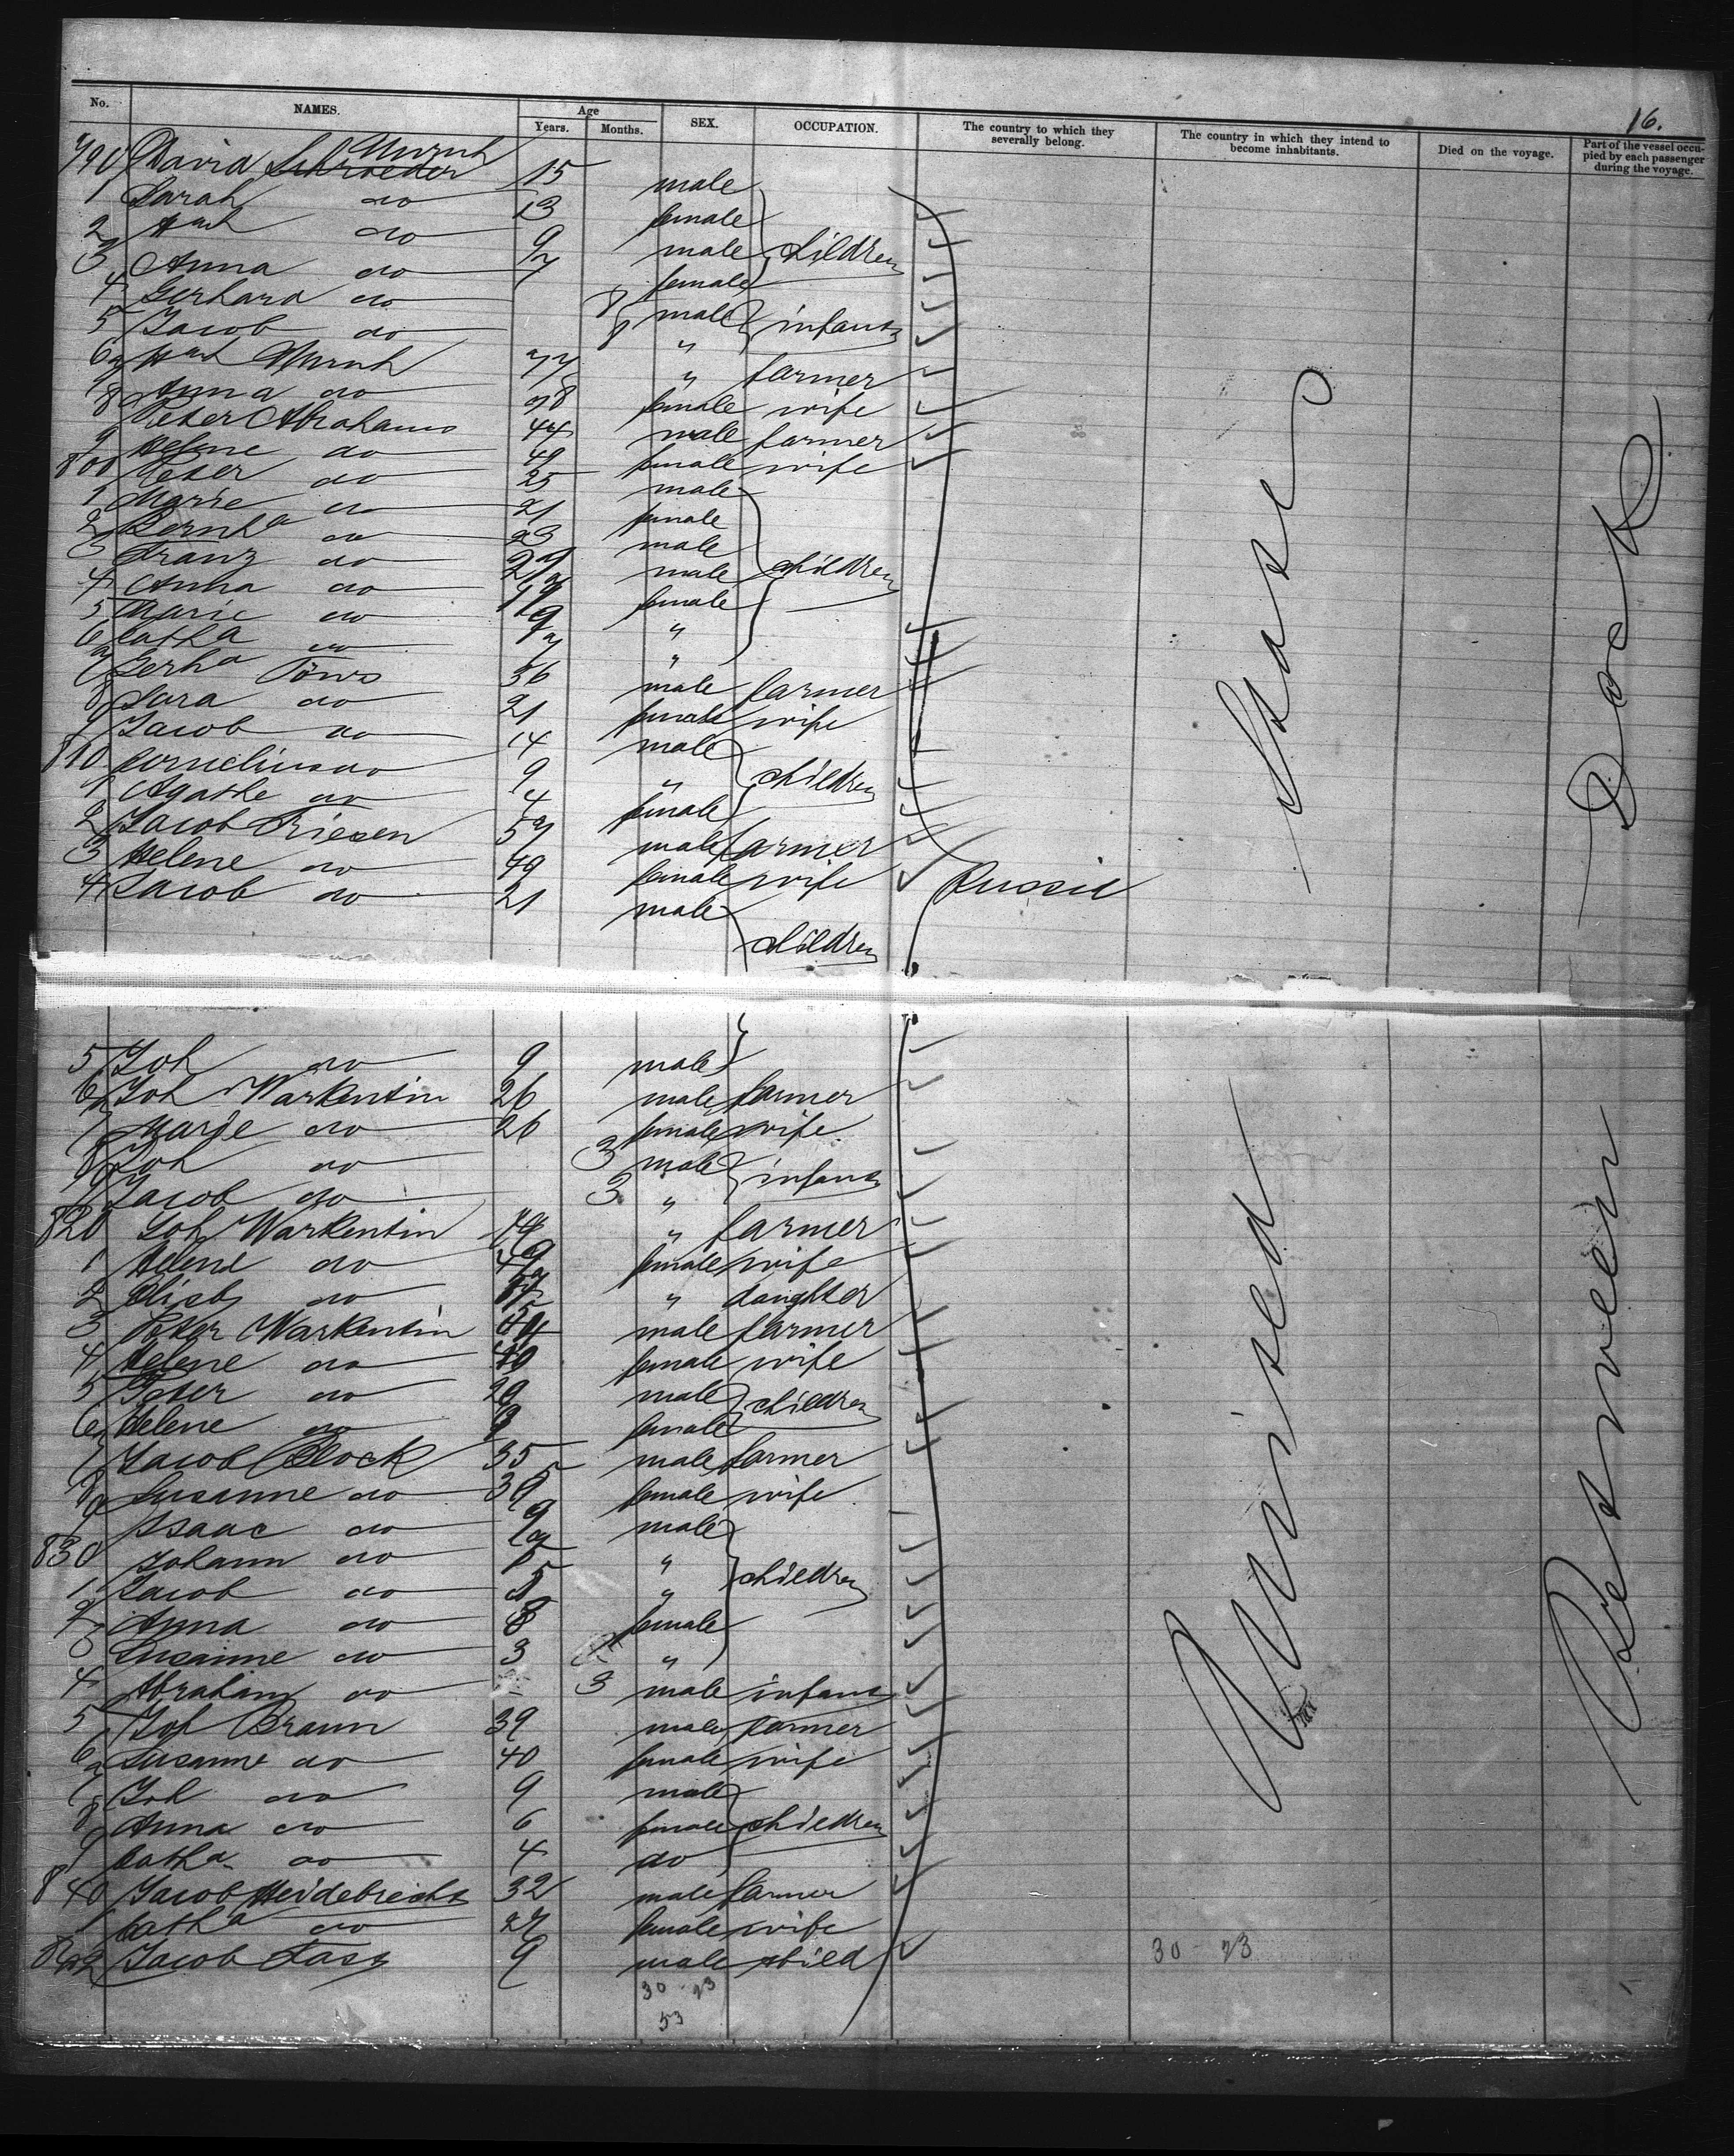 16.
No. NAMES. Age Years. Months. SEX. OCCUPATION. The country to which they severally belong. The country in which they intend to become inhabitants. Died on the voyage. Part of the vessel occupied by each passenger during the voyage.
790 David Schroeder 15 male
1 Sarah do 13 female
2 do 9 male children
3 Anna do 7 female
4 Gerhard do 8 male infants
5 Jacob do 8 "
6 77 " farmer
7 Anna do 78 female wife
8 Peter Abrahams 44 male farmer
9 Helene do 49 female wife
800 Peter do 25 male
1 Marie do 21 female
2 do 23 male
3 Franz do male children
4 Anna do female
5 Marie do "
6 Catha do "
7 Gerha Töws 36 male farmer
8 Sara do 21 female wife
9 Jacob do 14 male
810 Cornelius do 9 " children
1 Agathe do 4 female
2 Jacob Riesen 57 male farmer
3 Helene do 49 female wife Russia
4 Jacob do 21 male
children
5 Joh do 9 male
6 Joh Warkentin 26 male farmer
7 Marie do 26 female wife
8 Joh do 3 male infants
9 Jacob do 3 "
820 Joh Warkentin " farmer
1 Helene do female wife
2 Elisb do " daughter
3 Peter Warkentin male farmer
4 Helene do 40 female wife
5 Peter do male children
6 Helene do female
7 Jacob Block 35 male farmer
8 Susanne do female wife
9 Isaac do 9 male
830 Johann do "
1 Jacob do " children
2 Anna do female
3 Susanne do 3 "
4 Abraham do 3 male infant
5 Joh Braun 39 male farmer
6 Susanne do 40 female wife
7 Joh do 9 male
8 Anna do 6 female children
9 Catha do 4 do
840 Jacob Heidebrecht 32 male farmer
1 Catha do 27 female wife
842 Jacob Fast 9 male child
30 23
30 23
53
United States
Between Deck